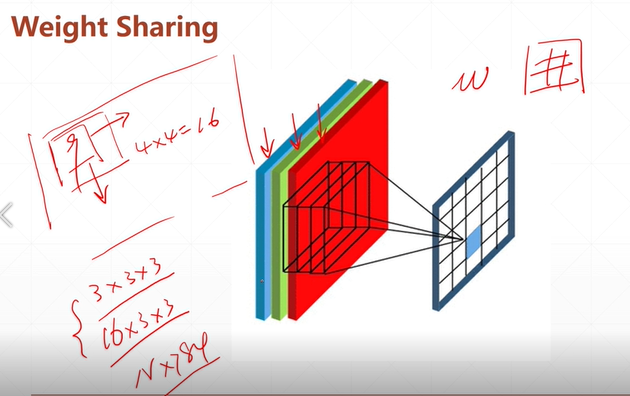 Weight Sharing
w
4×4=16
3×3×3
16×3×3
N×784